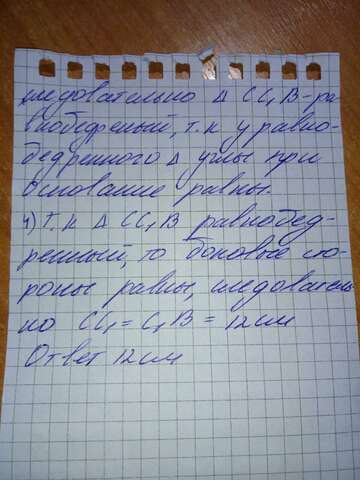 следовательно Δ CC₁B-ра
внобедреный, т.к у равно-
бедренного Δ углы при
основание равны.
4) т.к Δ CC₁B равнобед-
ренный, то боковые сто-
роны равны, следователь
но CC₁ = C₁B = 12см
Ответ 12см